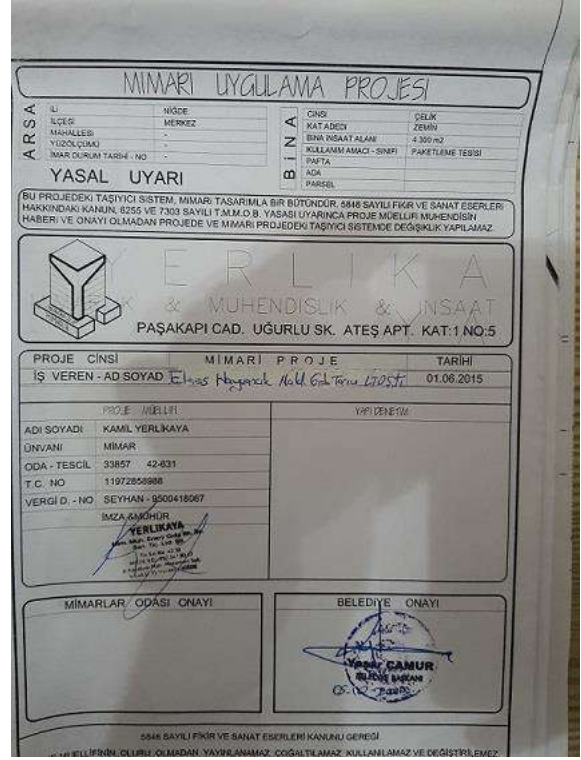 MİMARİ UYGULAMA PROJESİ
ARSA
İLİ NİĞDE
İLÇESİ MERKEZ
MAHALLESİ -
YÜZÖLÇÜMÜ -
İMAR DURUM TARİHİ - NO -
BİNA
CİNSİ ÇELİK
KAT ADEDİ ZEMİN
BİNA İNŞAAT ALANI 4.300 m2
KULLANIM AMACI - SINIFI PAKETLEME TESİSİ
PAFTA
ADA
PARSEL
YASAL UYARI
BU PROJEDEKİ TAŞIYICI SİSTEM, MİMARİ TASARIMLA BİR BÜTÜNDÜR. 5846 SAYILI FİKİR VE SANAT ESERLERİ
HAKKINDAKİ KANUN, 6255 VE 7303 SAYILI T.M.M.O.B. YASASI UYARINCA PROJE MÜELLİFİ MÜHENDİSİN
HABERİ VE ONAYI OLMADAN PROJEDE VE MİMARİ PROJEDEKİ TAŞIYICI SİSTEMDE DEĞİŞİKLİK YAPILAMAZ.
YERLİKA
& MÜHENDİSLİK & İNŞAAT
PAŞAKAPI CAD. UĞURLU SK. ATEŞ APT. KAT:1 NO:5
PROJE CİNSİ MİMARİ PROJE TARİHİ
İŞ VEREN - AD SOYAD 01.06.2015
PROJE MÜELLİFİ
YAPI DENETİM
ADI SOYADI KAMİL YERLİKAYA
ÜNVANI MİMAR
ODA - TESCİL 33857 42-631
T.C. NO 11972858988
VERGİ D. - NO SEYHAN - 9500418067
İMZA &MÜHÜR
YERLİKAYA
MİMARLAR ODASI ONAYI
BELEDİYE ONAYI
Yaşar ÇAMUR
BELEDİYE BAŞKANI
5846 SAYILI FİKİR VE SANAT ESERLERİ KANUNU GEREĞİ
OLURU OLMADAN YAYINLANAMAZ, ÇOĞALTILAMAZ, KULLANILAMAZ VE DEĞİŞTİRİLEMEZ